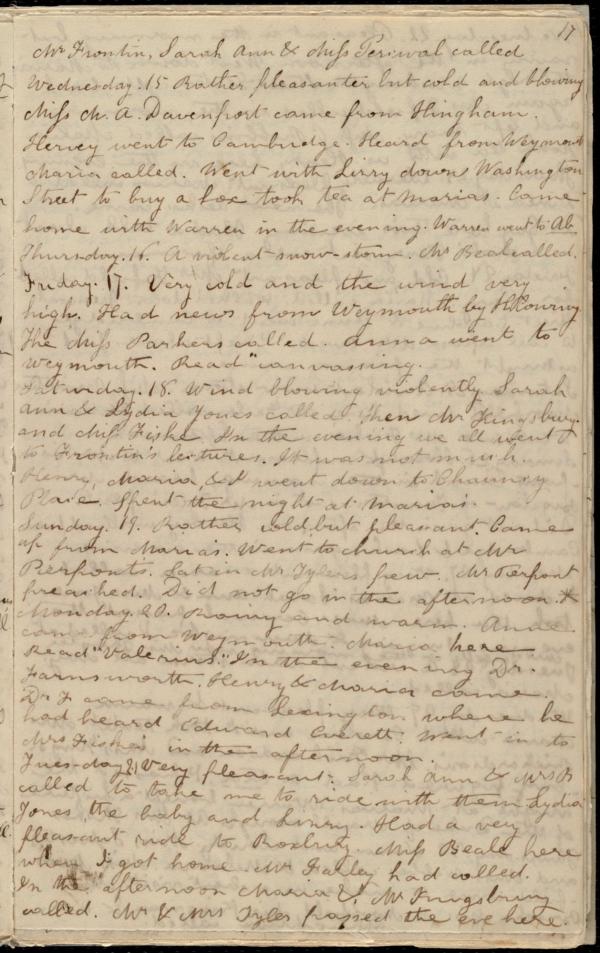 17
Mr Frontin, Sarah Ann & Miss Percival called
Wednesday. 15 Rather pleasanter but cold and blowing
Miss M. A. Davenport came from Hingham.
Hervey went to Cambridge. Heard from Weymouth
Maria called. Went with Lizzy down Washington
Street to buy a box took tea at Marias. Came
home with Warren in the evening. Warren went to Ab
Thursday. 16. A violent snow-storm. Mr Beal called.
Friday. 17. Very cold and the wind very
high. Had news from Weymouth by H
The Miss Parkers called. Anna went to
Weymouth. Read "canvassing.
Saturday. 18. Wind blowing violently Sarah
Ann & Lydia Jones called then Mr Kingsbury
and Miss Fiske In the evening we all went
to Frontin's lectures. It was not much.
Henry, Maria, & I went down to Chauncy
Place. Spent the night at Maria's.
Sunday. 19. Rather cold but pleasant. Came
up from Maria's. Went to church at Mr
Pierponts. Sat in Mr Tylers pew. Mr Pierpont
preached. Did not go in the afternoon.
Monday. 20. Rainy and warm. Anna
came from Weymouth. Maria here
Read "Valerius." In the evening Dr.
Farnsworth, Henry & Maria came.
Dr F came from Lexington where he
had heard Edward Everett. Went in to
Mrs Fishes in the afternoon.
Tuesday 21 Very pleasant. Sarah Ann & Mrs B
called to take me to ride with them Lydia
Jones, the baby and Linny. Had a very
pleasant ride to Roxbury. Miss Beale here
when I got home. Mr Farley had called.
In the afternoon Maria & Mr Kingsbury
called. Mr & Mrs Tyler passed the eve here.